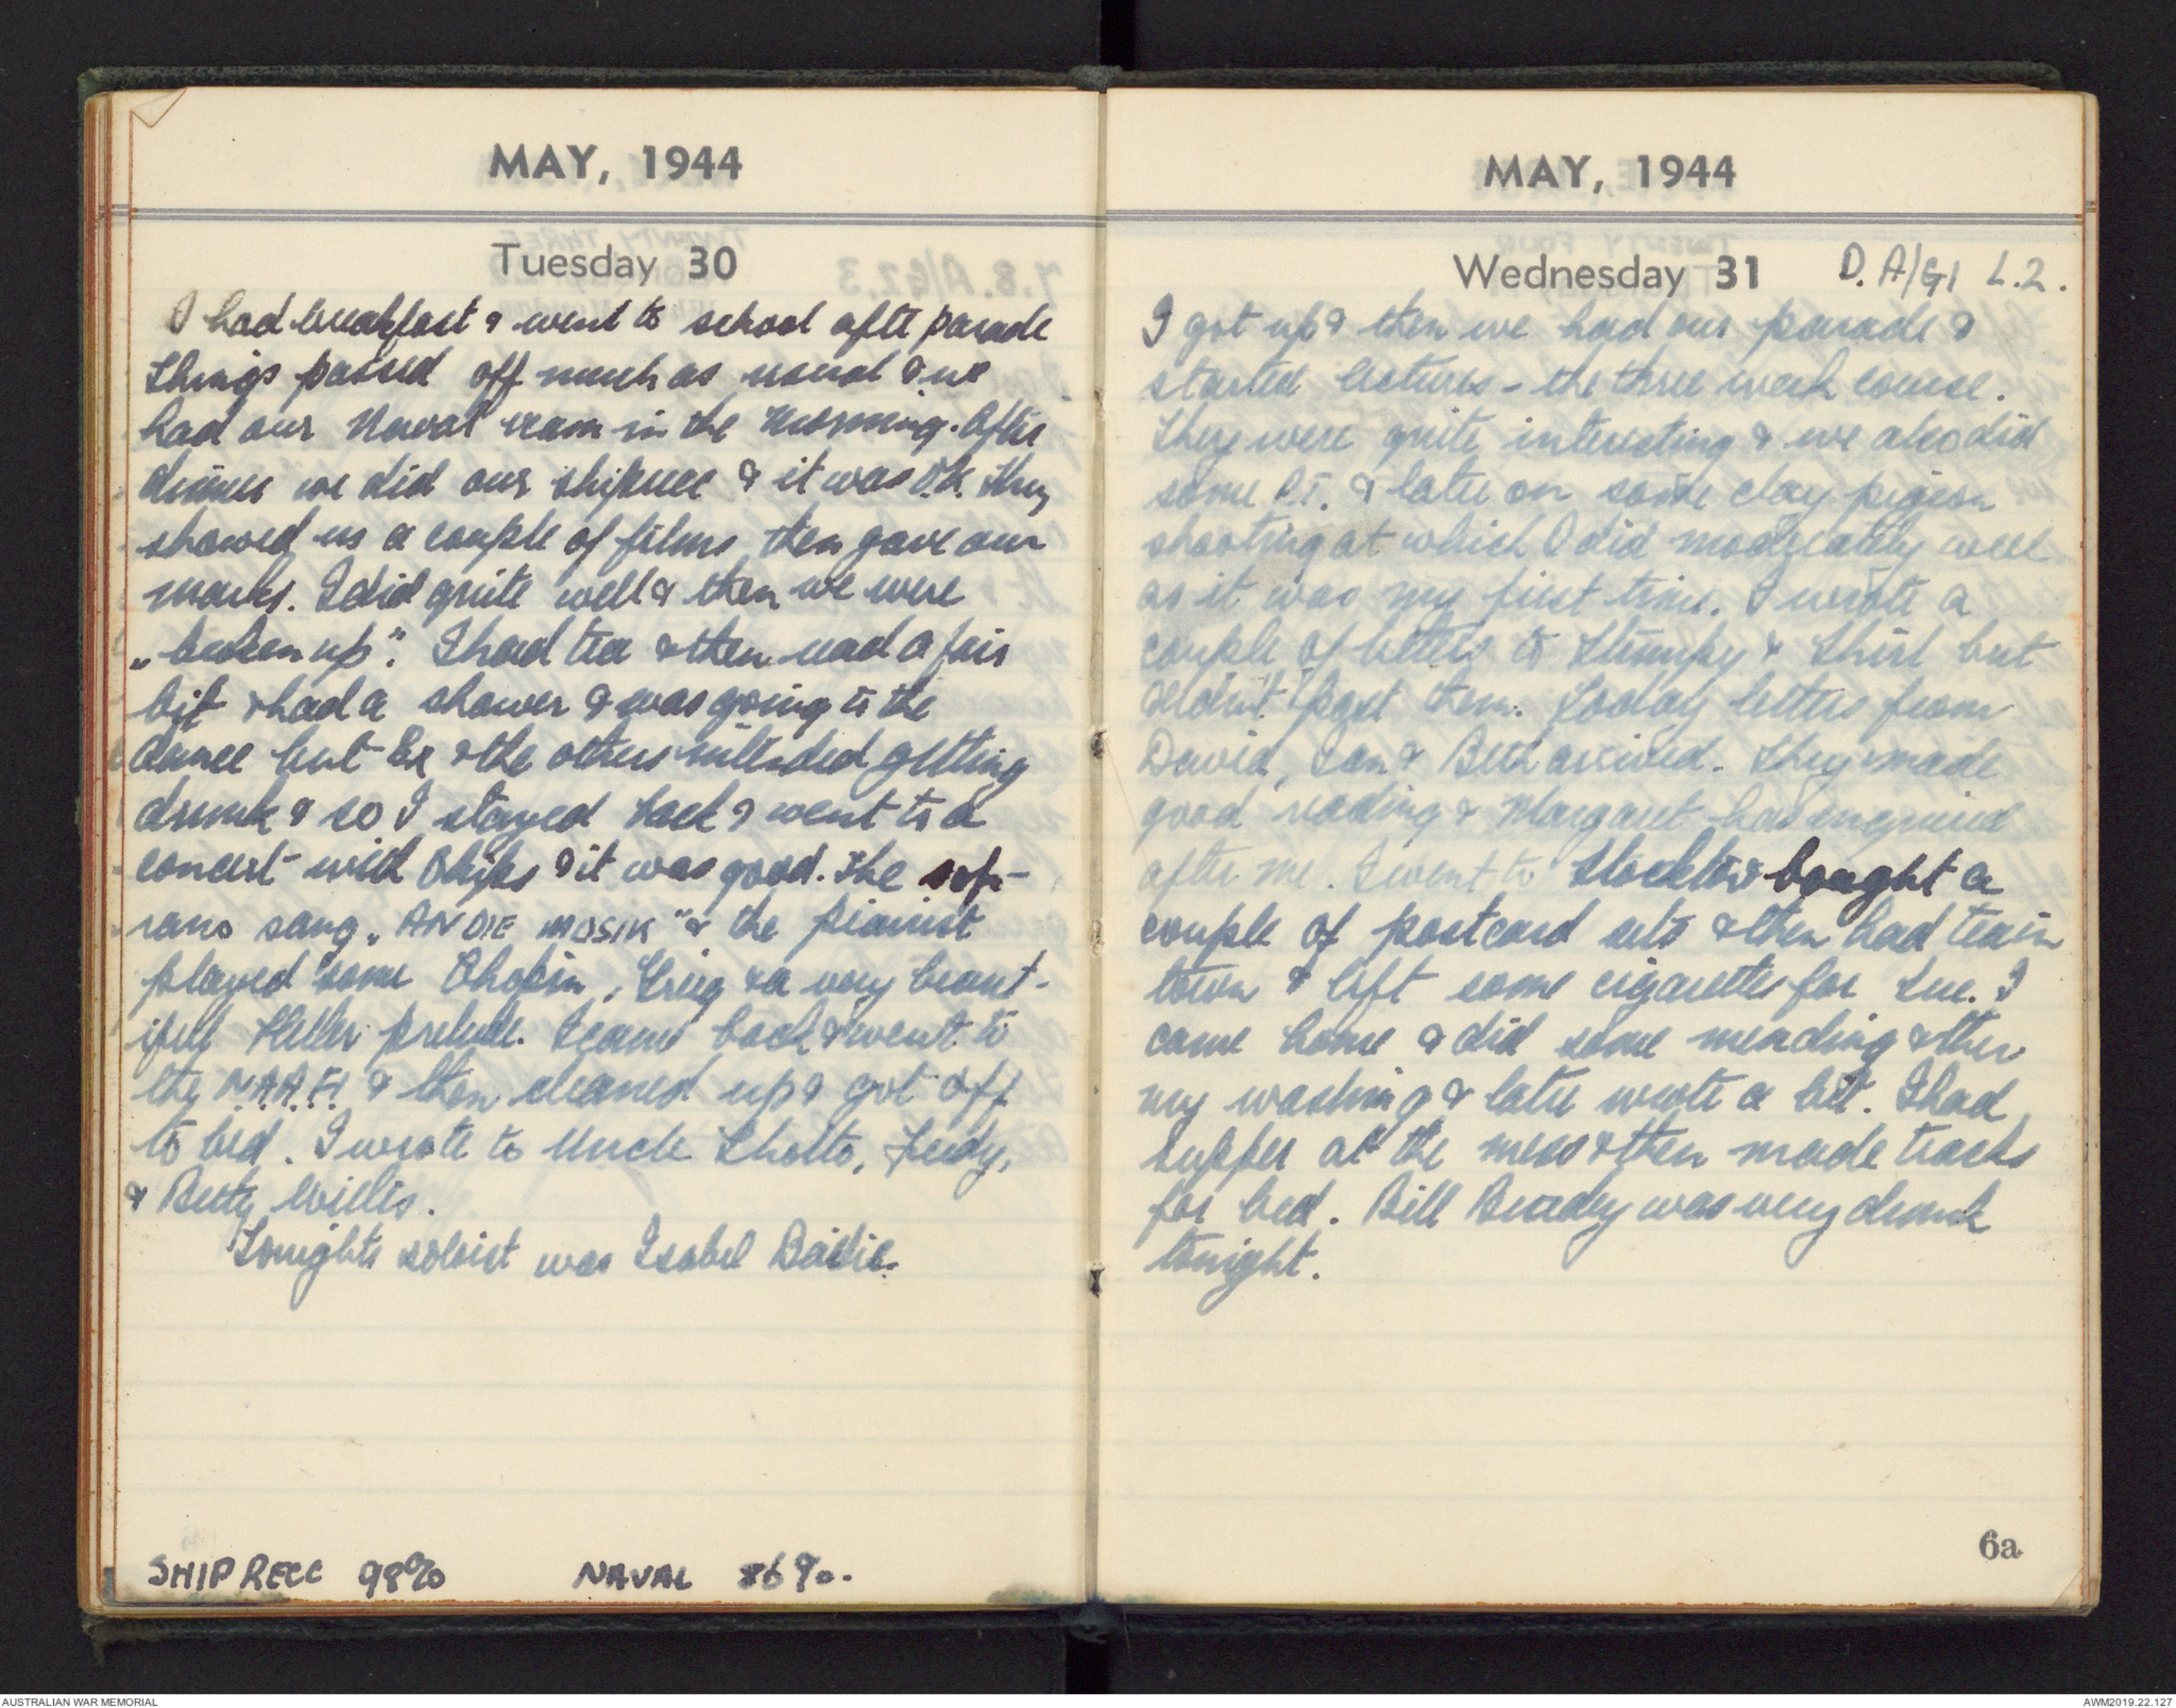 MAY, 1944
Tuesday 30
I had breakfast & went to school afte parade
Things passed off much as usual & we
had our Naval exam in the morning. After
dinner we did our shiprecc & it was O.K. They
showed us a couple of films, then gave our
marks. I did quite well & then we were
"broken up". I had tea & then read a fair
bit & had a shower & was going to the
dance but Ex & the others intended getting
drunk & so I stayed back & went to a
concert with Chips & it was good. The sop-
rano sang "AN DIE MUSIK" & the pianist
played some Chopin, Grieg & a very beaut-
iful Heller prelude. I came back & went to
the N.A.A.F.I & then cleaned up & got off
to bed. I wrote to Uncle Sholto, Judy,
& Betty Willis.
Tonights soloist was Isobel Bailie.
SHIP RECC 98% NAVAL 86%.
MAY, 1944
Wednesday 31 D. A/G1 L.2.
I got up & then we had our parade &
started lectures - the three week course.
They were quite interesting & we also did
some P.T. & later on some clay pigeon
shooting at which I did moderately well
as it was my first time. I wrote a
couple of letters to Stumpy & Shirl but
didn't post them. Today letters from
David, Ian & Beth arrived. They made
good reading & Margaret has enquired
after me. I went to Stockton & bought a
couple of postcard sets & then had tea in
town & left some cigarettes for Sue. I
came home & did some mending & then
my washing & later wrote a bit. I had
supper at the mess & then made tracks
for bed. Bill Bradey was very drunk
tonight.
6a
AUSTRALIAN WAR MEMORIAL
AWM2019.22.127